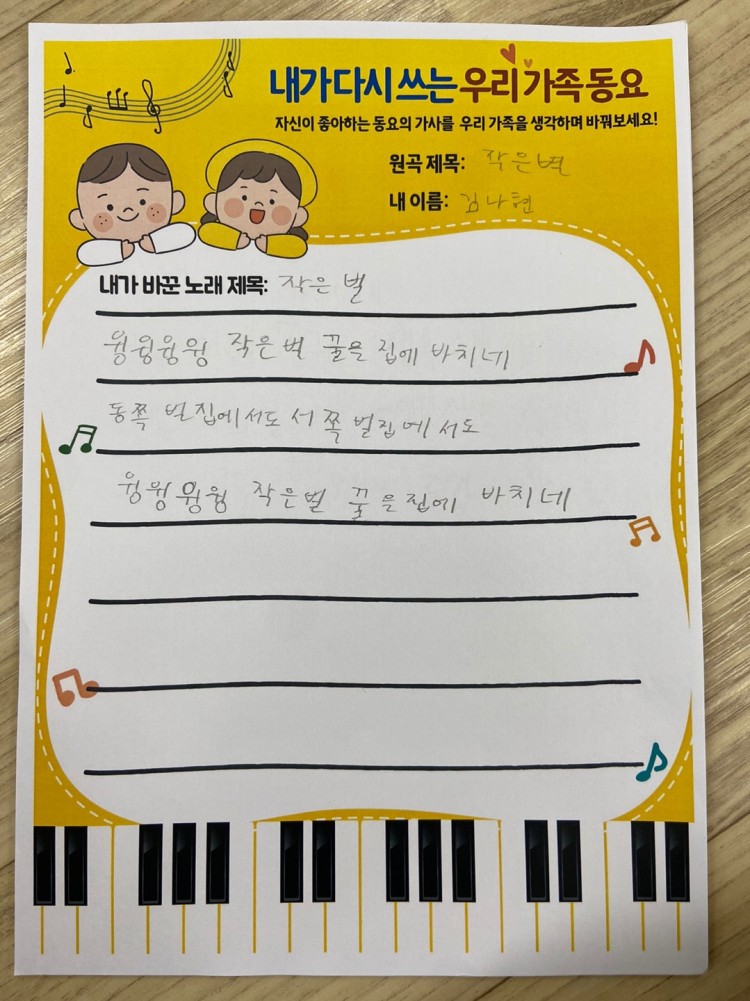 내가 다시 쓰는 우리 가족 동요
자신이 좋아하는 동요의 가사를 우리 가족을 생각하며 바꿔보세요!
원곡 제목: 작은별
내 이름: 김나현
내가 바꾼 노래 제목: 작은 벌
윙윙윙윙 작은벌 꿀은 집에 바치네
동쪽 벌집에서도 서쪽 벌집에서도
윙윙윙윙 작은벌 꿀은집에 바치네